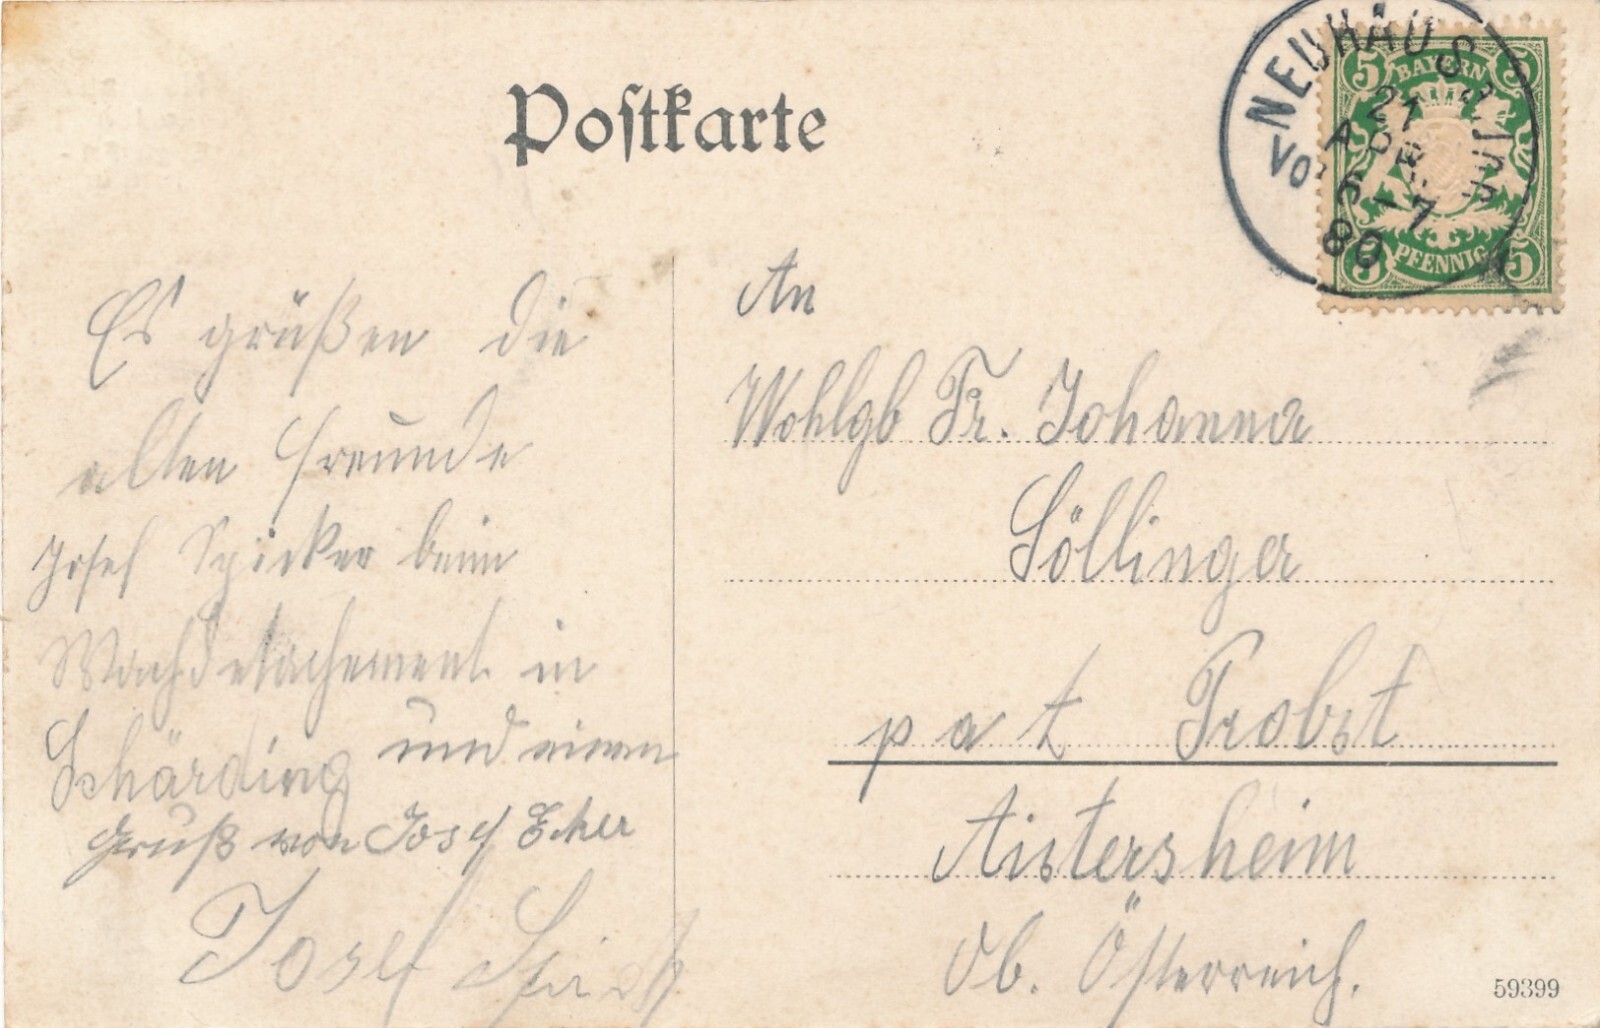 Postkarte
NEUHAUS a/Inn
21
APR.
Vo. 6-7
80
5 BAYERN 5
5 PFENNIG 5
Es grüßen die
alten Freunde
Josef Spicker beim
Wachdetachement in
Schärding und einen
Gruß von Josef Ecker
Josef
An
Wohlgb Fr. Johanna
Söllinger
pat Probst
Aistersheim
Ob. Österreich.
59399